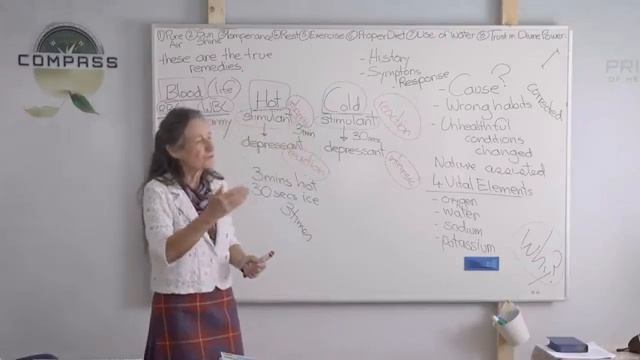 COMPASS
PRI
OF ME
① Pure Air ② Sun Shine ③ Temperance ④ Rest ⑤ Exercise ⑥ Proper Diet ⑦ Use of Water ⑧ Trust in Divine Power
these are the true
remedies,
Blood (life)
RBC WBC
Hot
stimulant
3min
depressant
3mins hot
30secs ice
3times
Cold
stimulant
30secs
depressant
reaction
- History
- Symptoms
Response
- Cause?
- Wrong habits
corrected
- Unhealthful
conditions
changed
Nature assisted
4 Vital Elements
- oxygen
- water
- sodium
- potassium
Why?